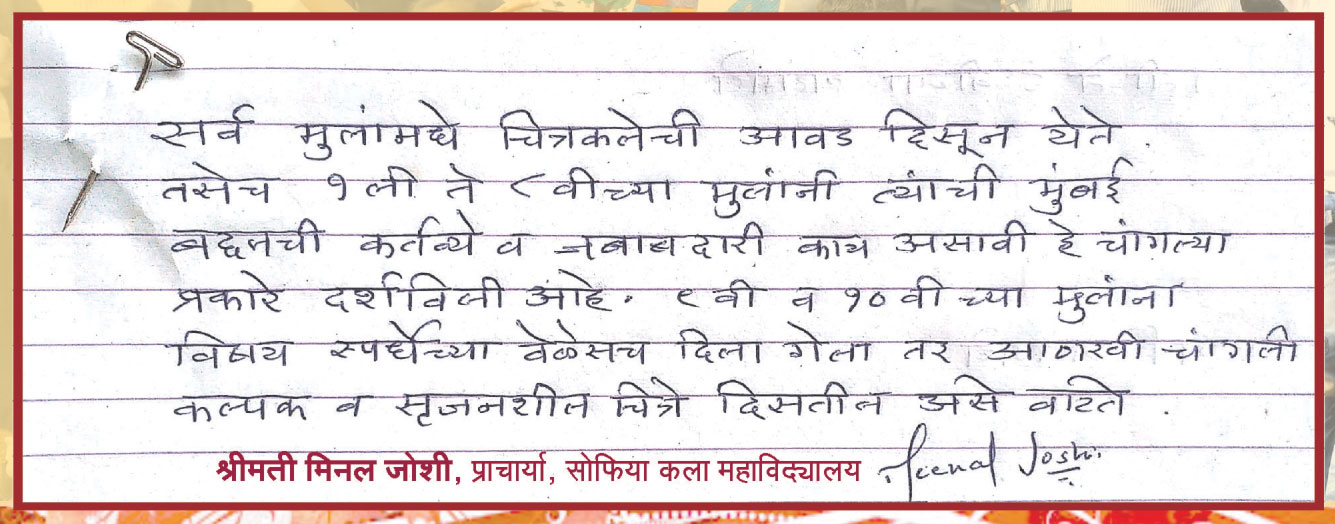 सर्व मुलांमधे चित्रकलेची आवड दिसून येते.
तसेच १ ली ते ८ वीच्या मुलांनी त्यांची मुंबई
बद्दलची कर्तव्ये व जबाबदारी काय असावी हे चांगल्या
प्रकारे दर्शविली आहे. ९ वी व १० वी च्या मुलांना
विषय स्पर्धेच्या वेळेसच दिला गेला तर आणखी चांगली
कल्पक व सृजनशील चित्रे दिसतील असे वाटते.
श्रीमती मिनल जोशी, प्राचार्या, सोफिया कला महाविद्यालय Meenal Joshi